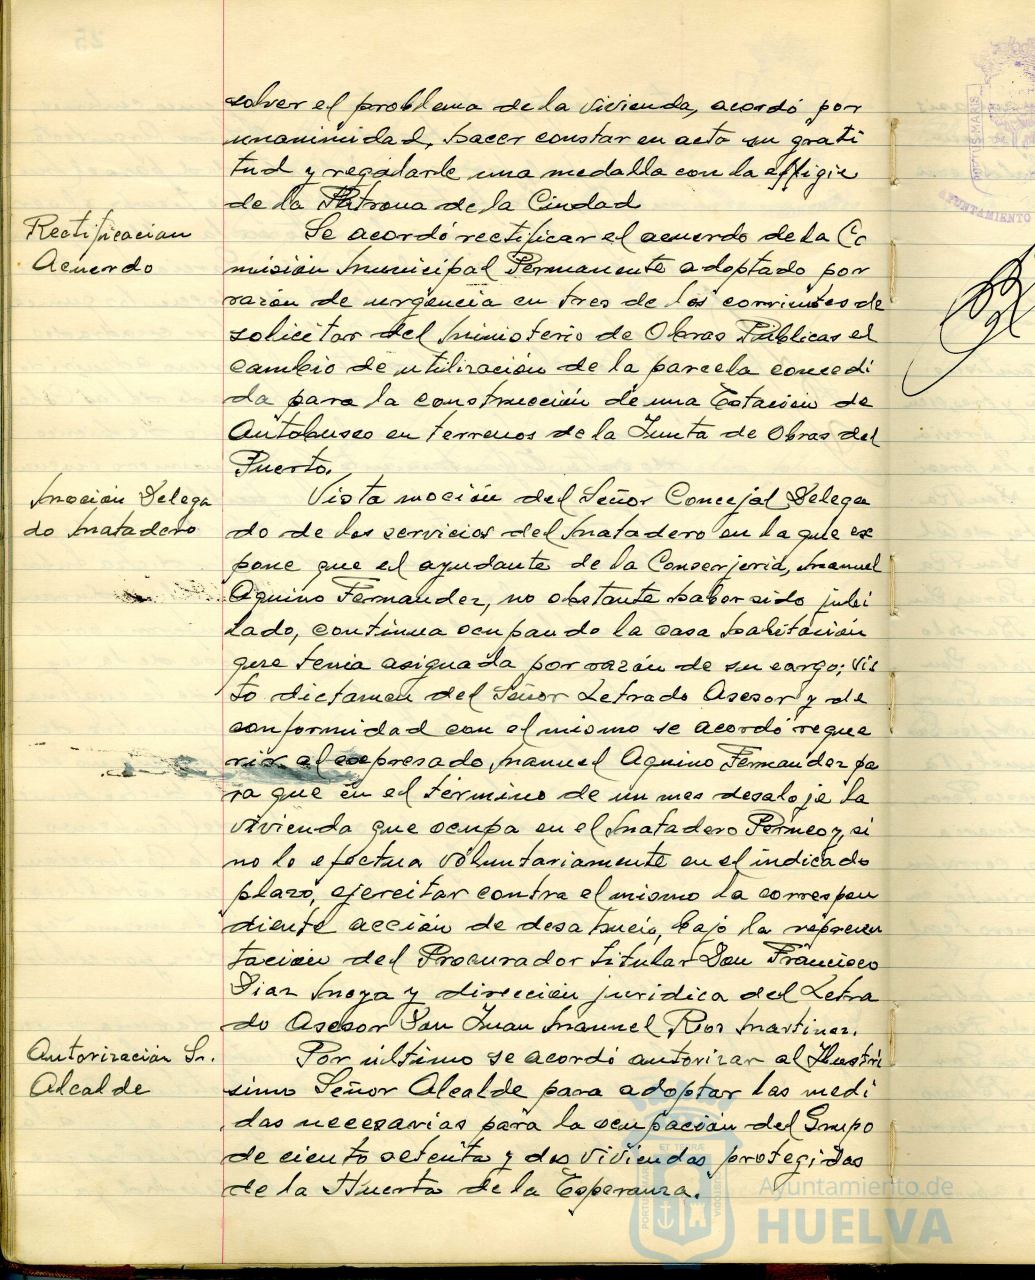 solver el problema de la vivienda, acordó por
unanimidad, hacer constar en acta su grati
tud y regalarle una medalla con la effigie
de la Patrona de la Ciudad
Rectificacion
Acuerdo
Se acordó rectificar el acuerdo de la Co
misión Municipal Permanente adoptado por
razón de urgencia en tres de los corrientes de
solicitar del Ministerio de Obras Publicas el
cambio de utilización de la parcela concedi
da para la construcción de una Estación de
Autobuses en terrenos de la Junta de Obras del
Puerto.
Moción Delega
do Matadero
Vista moción del Señor Concejal Delega
do de los servicios del Matadero en la que ex
pone que el ayudante de la Conserjeria, Manuel
Aquino Fernandez, no obstante haber sido jubi
lado, continua ocupando la casa habitación
que tenia asignada por razón de su cargo; vis
to dictamen del Señor Letrado Asesor y de
conformidad con el mismo se acordó reque
rir al expresado Manuel Aquino Fernandez pa
ra que en el término de un mes desaloje la
vivienda que ocupa en el Matadero y, si
no lo efectua voluntariamente en el indicado
plazo, ejercitar contra el mismo la correspon
diente acción de desahucio, bajo la represen
tación del Procurador titular Don Francisco
Diaz Moya y dirección juridica del Letra
do Asesor Don Juan Manuel Rios Martinez.
Autorización Sr.
Alcalde
Por último se acordó autorizar al Ilustri
simo Señor Alcalde para adoptar las medi
das necesarias para la ocupación del Grupo
de ciento setenta y dos viviendas protegidas
de la Huerta de la Esperanza.
Ayuntamiento de
HUELVA